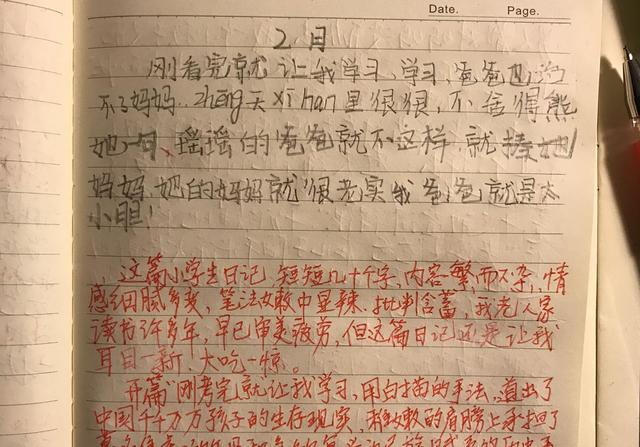 Date. Page.
2.日
刚看完就让我学习,学习,爸爸也治
不了妈妈..zhěng天xī han里很很,不舍得熊
她一句、瑶瑶的爸爸就不这样 就揍她
妈妈 她的妈妈就很老实我爸爸就是太
小胆!
这篇小学生日记,短短几十个字,内容繁而不杂,情
感细腻多变,笔法如嫩中显辣,批判含蓄,我老人家
读书许多年,早已审美疲劳,但这篇日记还是让我
耳目一新,大吃一惊。
开篇"刚考完就让我学习,用白描的手法,道出了
中国千千万万孩子的生存现实,稚嫩的肩膀上承担了